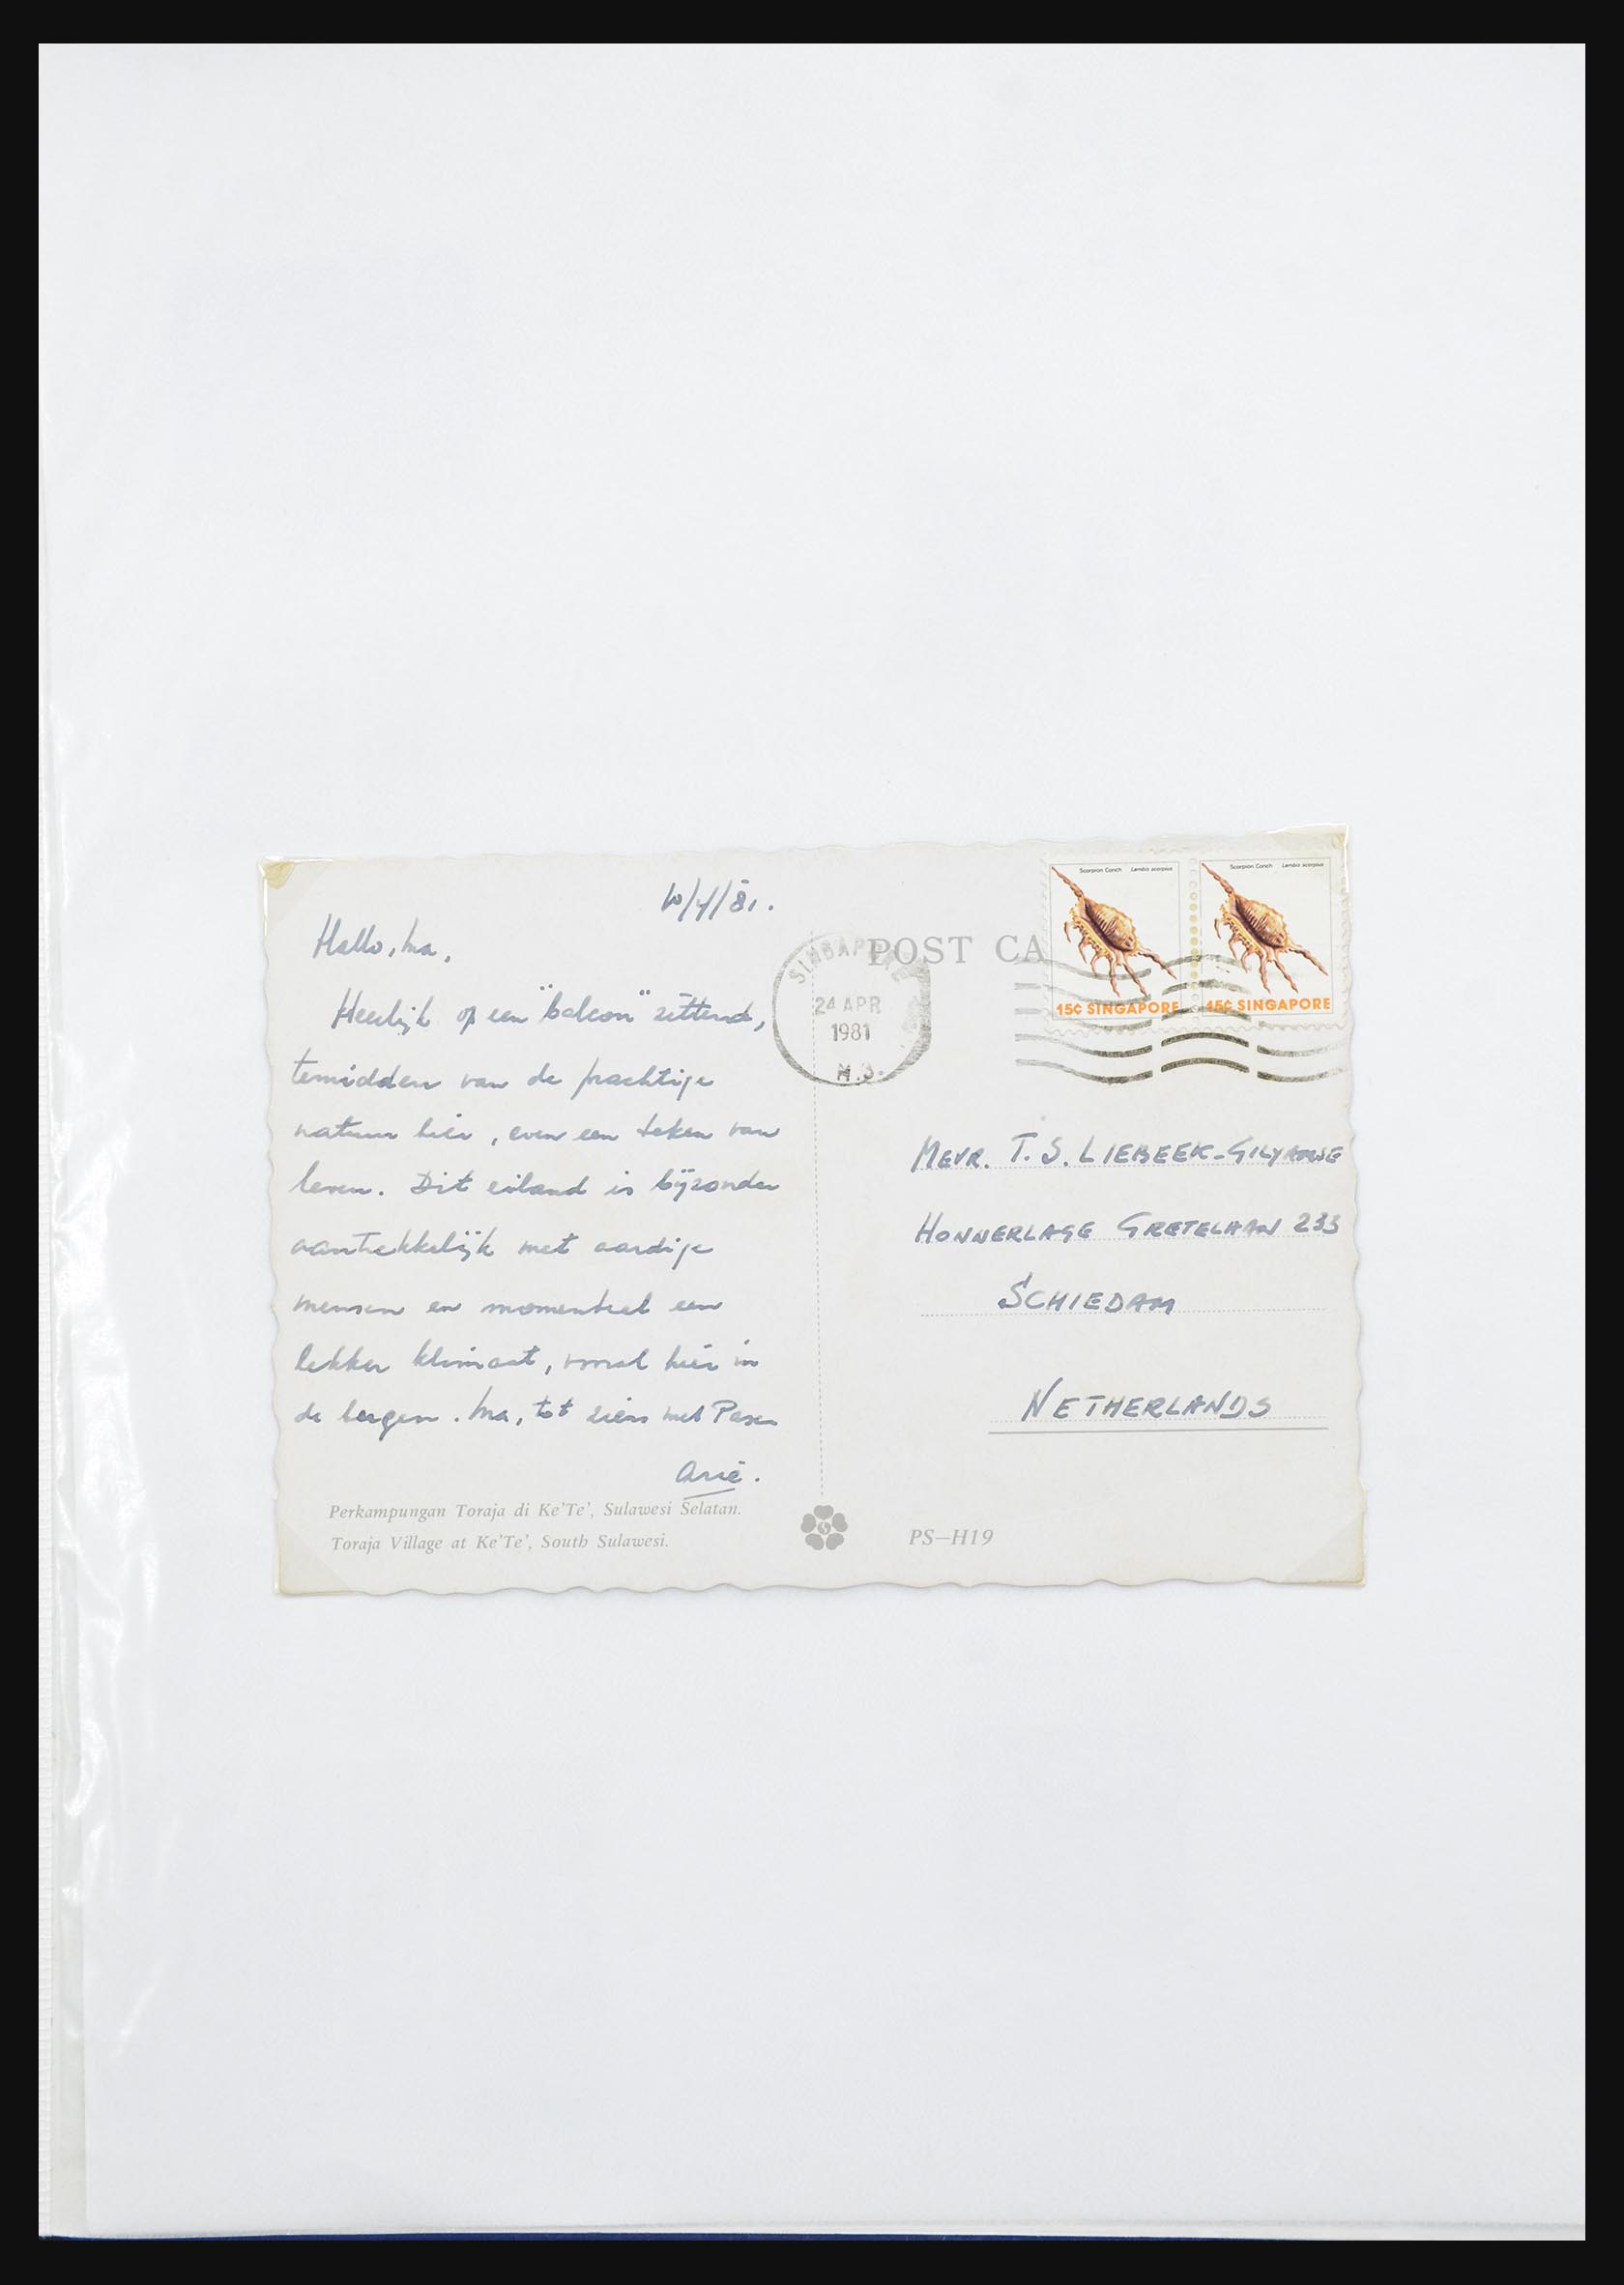 10/4/81.
Hallo, Ma,
Heerlijk op een "balcon" zittend,
temidden van de prachtige
natuur hier, even een teken van
leven. Dit eiland is bijzonder
aantrekkelijk met aardige
mensen en momenteel een
lekker klimaat, vooral hier in
de bergen. Ma, tot ziens met Pasen
Arie.
Perkampungan Toraja di Ke'Te', Sulawesi Selatan.
Toraja Village at Ke'Te', South Sulawesi.
POST CA
SINGAPORE
24 APR
1981
Scorpion Conch Lambis scorpius
15c SINGAPORE
Scorpion Conch Lambis scorpius
15c SINGAPORE
MEVR. T. S. LIEBEEK-
HONNERLAGE GRETELAAN 233
SCHIEDAM
NETHERLANDS
PS-H19